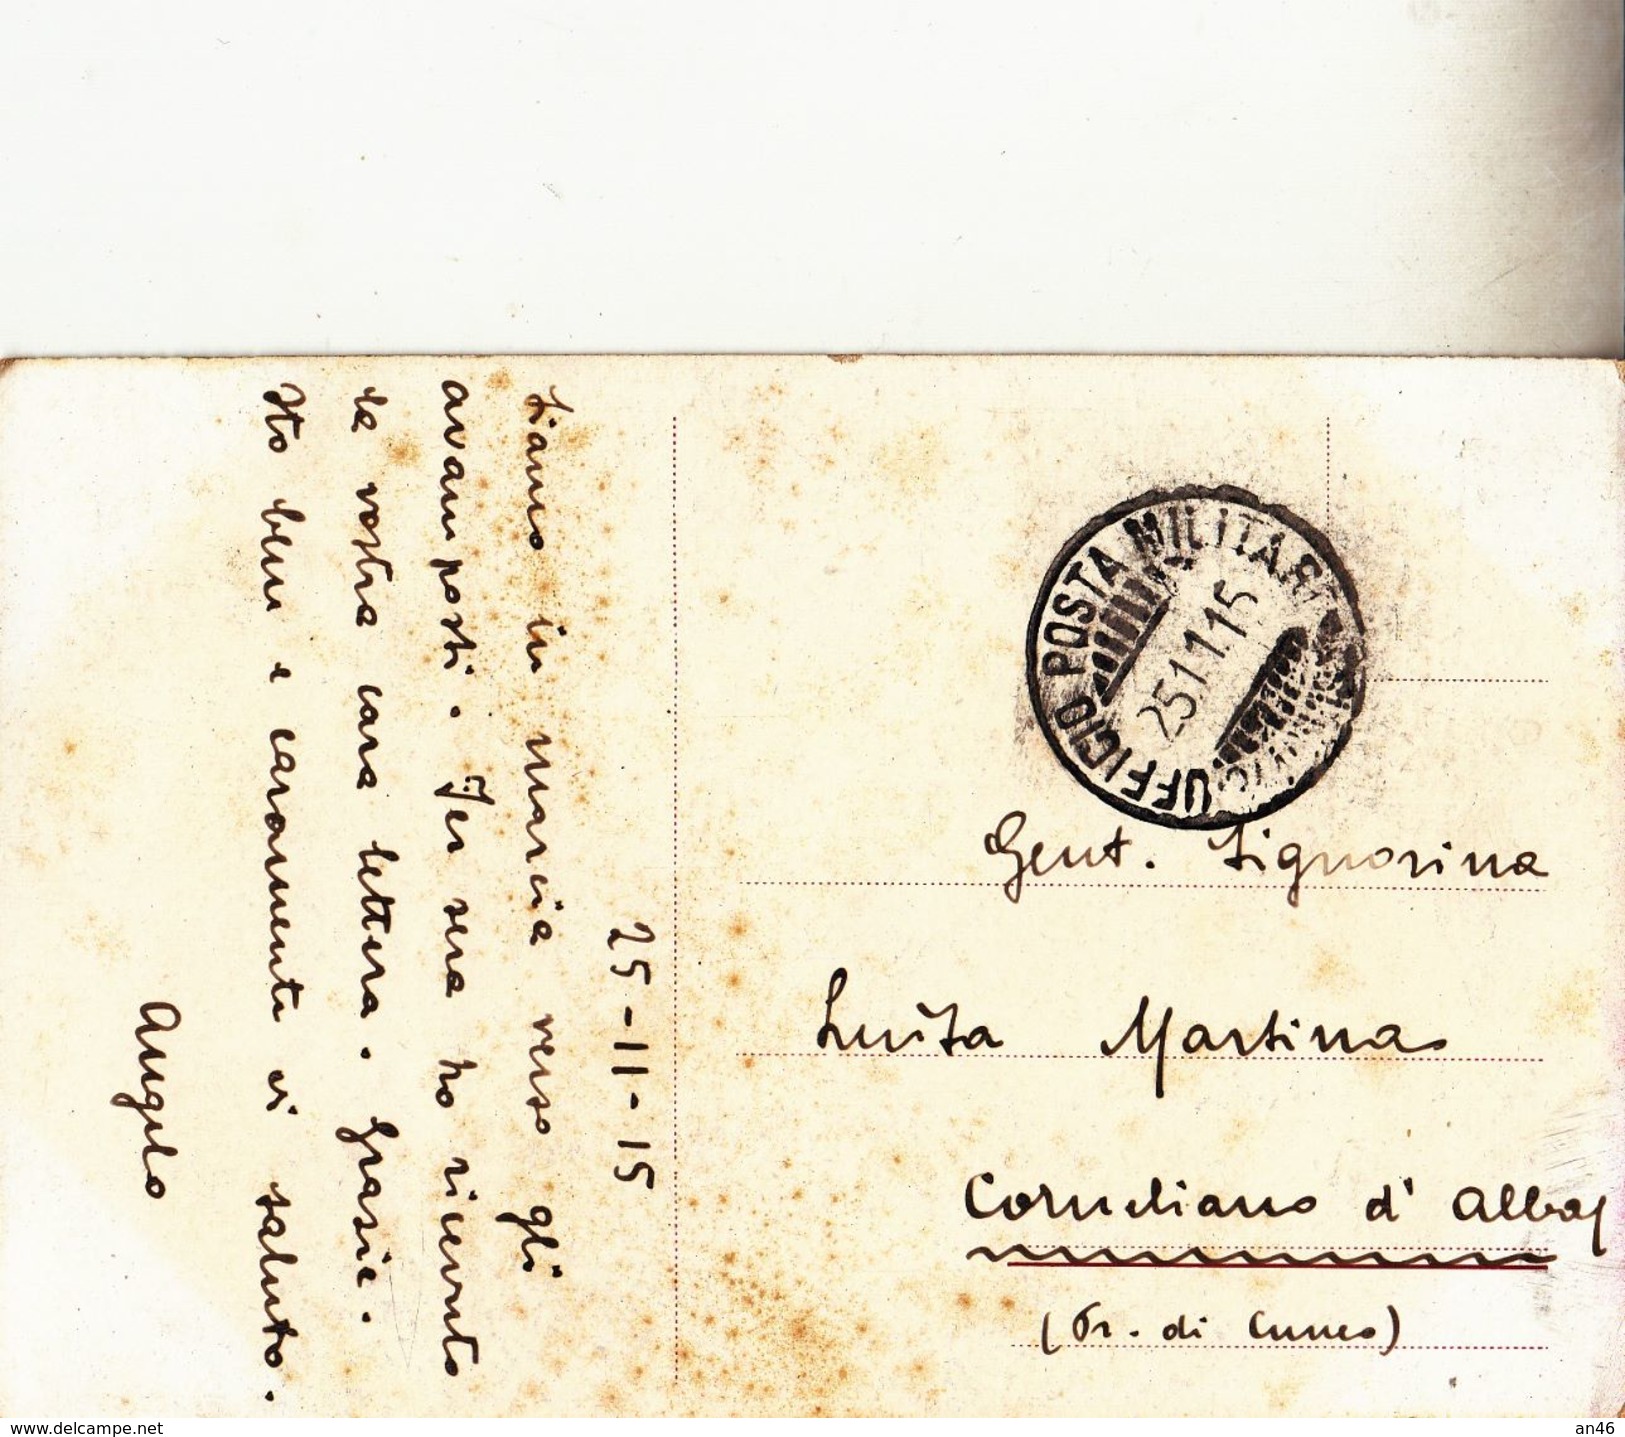 25-11-15
Siamo in marcia verso gli
avamposti. Ier sera ho ricevuto
la vostra cara lettera. Grazie.
Sto bene e caramente vi saluto.
Angelo
UFFICIO POSTA MILITARE
25 11 15
Gent. Signorina
Luisa Martina
Corneliano d' Alba
(Pr. di Cuneo)
www.delcampe.net
an46